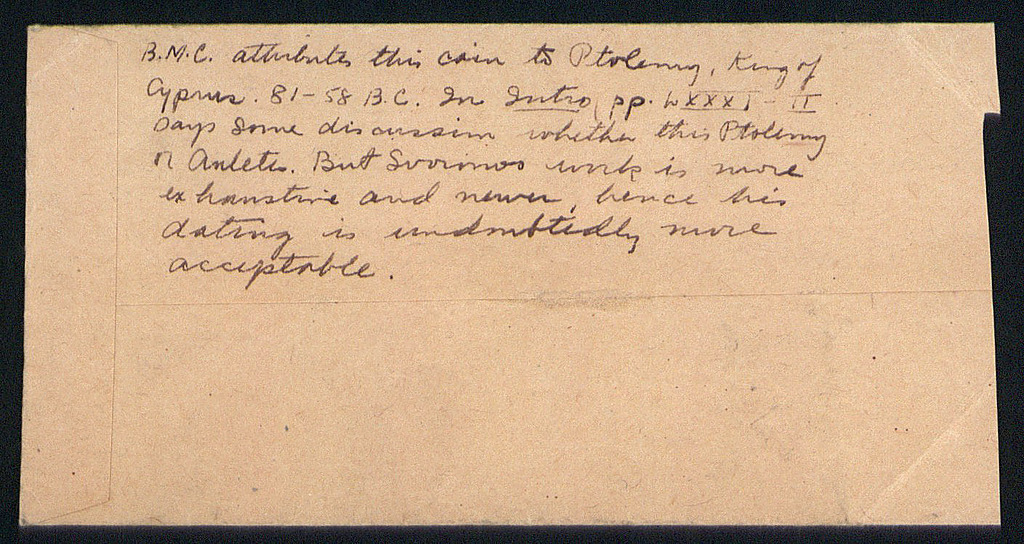 B.M.C. attributes this coin to Ptolemy, King of
Cyprus. 81-58 B.C. In Intro pp. LXXXI-II
says some discussion whether this Ptolemy
or Auletes. But Svoronos work is more
exhaustive and newer, hence his
dating is undoubtedly more
acceptable.